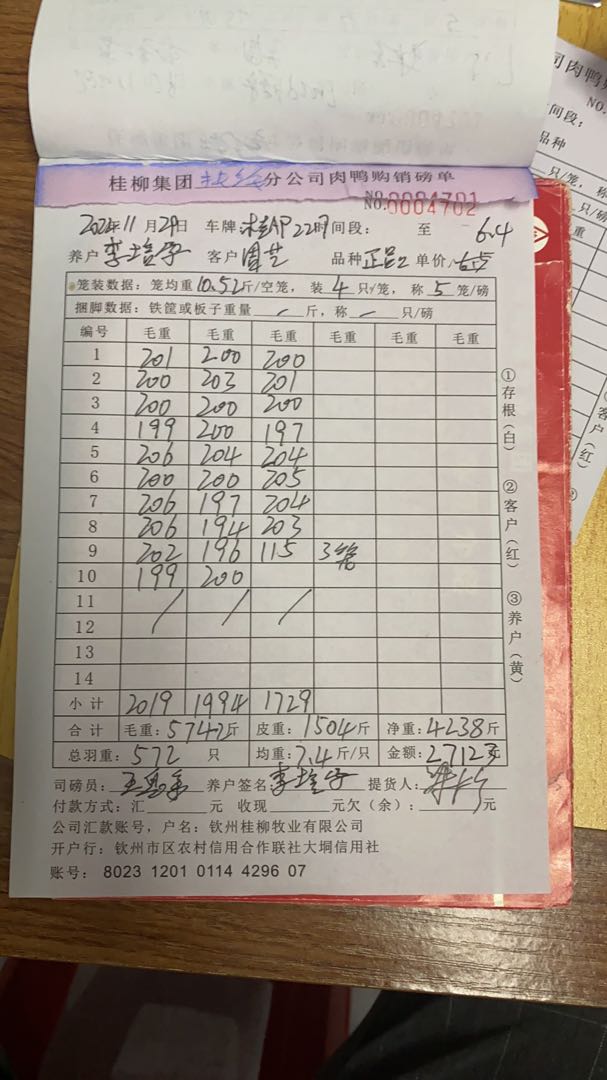 司肉鸭购
NO.
间段:
品种
只/笼, 称
桂柳集团 分公司肉鸭购销磅单
NO.0004702
11月29日 车牌: AP22时间段: 至 6.4
养户 李 客户 周艺 品种 正品2 单价:
笼装数据: 笼均重10.52斤/空笼, 装4只/笼, 称5笼/磅
捆脚数据: 铁筐或板子重量 / 斤, 称 / 只/磅
编号 毛重 毛重 毛重 毛重 毛重 毛重
1 201 200 200
2 200 203 201
3 200 200 200
4 199 200 197
5 206 204 204
6 200 200 205
7 206 197 204
8 206 194 203
9 202 196 115 3笼
10 199 200
11 / / /
12
13
14
小计 2019 1994 1729
合计 毛重:5742斤 皮重:1504斤 净重:4238斤
总羽重:572 只 均重:7.4斤/只 金额:27123
司磅员: 养户签名: 李 提货人:
付款方式: 汇 元 收现 元欠(余): 元
公司汇款账号, 户名: 钦州桂柳牧业有限公司
开户行: 钦州市区农村信用合作联社大垌信用社
账号: 8023 1201 0114 4296 07
①存根(白) ②客户(红) ③养户(黄)